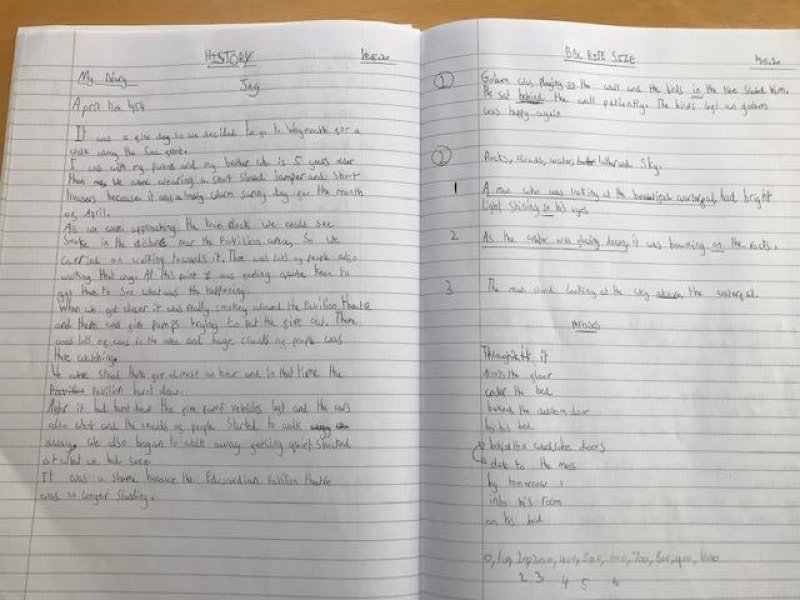 HISTORY
My Diary
April 1954
It was a fine day so we decided to go to Weymouth for a
walk along the Sea front.
I was with my friend and my brother who is 5 years older
then me. We were wearing a short sleeved jamper and short
trousers because it was a lovely warm sunny day for the month
of April.
As we were approaching the town clock we could see
Smoke in the distance near the Pavilion area, So we
Carried on walking towards it. There was lots of people also
walking that way. At this point I was feeling quite keen to
get there to see what was the happening.
When we got closer it was really smoking around the Pavilion theatre
and there was fire pumps trying to put the fire out. There
was lots of cars in the area and huge crowds of people was
there watching.
We were stood there for almost an hour and in that time the
Pavilion burnt down.
After it had burnt down the fire pump vehicles left and the cars
also went and the crowds of people Started to walk
away. We also began to walk away feeling quiet Shocked
at what we had seen.
It was a shame because the Edwardian Pavilion theatre
was no longer standing.
BBC BITE SIZE
1 Golem was playing on the wall and the birds in the tree him.
He sat behind the wall patiently. The birds left an golem
was happy again
2 Rocks, clouds, water, and Sky.
1 A man who was looking at the beautiful waterfall, had bright
light Shining in his eyes
2 As the water was flowing down, it was bounding on the rocks.
3 The man stood looking at the sky above the waterfall.
PHRASES
Through it
across the floor
under the bed
behind the bedroom door
by his bed
behind the wardrobe doors
due to the mess
by tomorrow
into his room
on his bed
0, 100, 200, 300, 400, 500, 600, 700, 800, 900, 1000
2 3 4 5 6